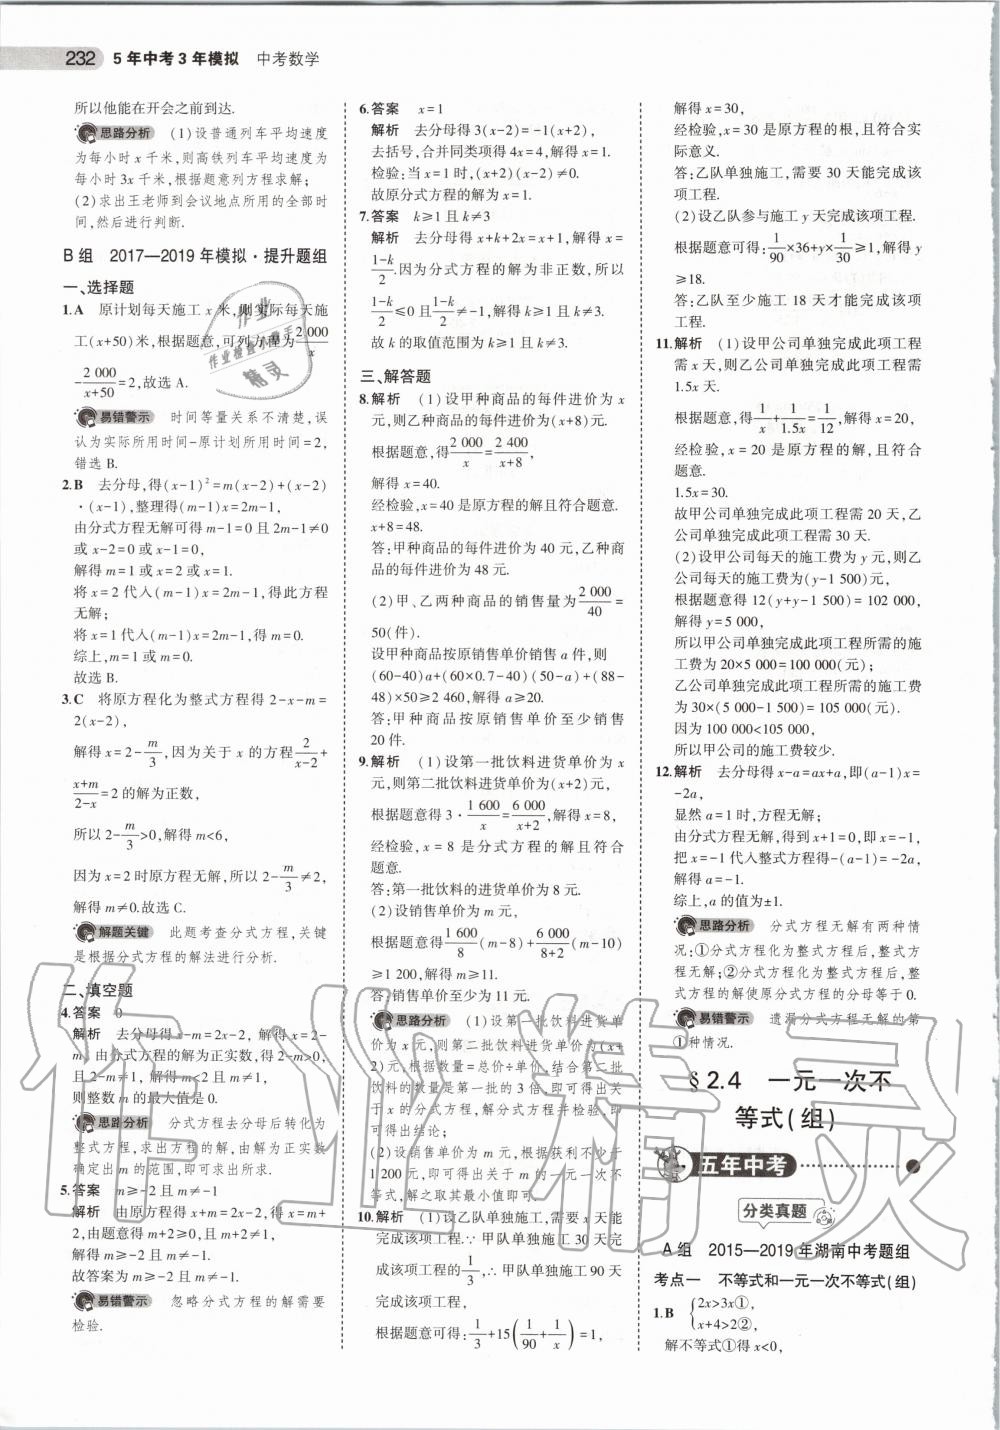 232 5年中考3年模拟 中考数学
所以他能在开会之前到达.
思路分析 (1)设普通列车平均速度
为每小时x千米,则高铁列车平均速度为
每小时3x千米,根据题意列方程求解;
(2)求出王老师到会议地点所用的全部时
间,然后进行判断.
B组 2017—2019年模拟·提升题组
一、选择题
1.A 原计划每天施工x米,则实际每天施
工(x+50)米,根据题意,可列方程为2 000/x
-2 000/(x+50)=2,故选A.
易错警示 时间等量关系不清楚,误
认为实际所用时间-原计划所用时间=2,
错选B.
2.B 去分母,得(x-1)²=m(x-2)+(x-2)
·(x-1),整理得(m-1)x=2m-1,
由分式方程无解可得m-1=0且2m-1≠0
或x-2=0或x-1=0,
解得m=1或x=2或x=1.
将x=2代入(m-1)x=2m-1,得此方程
无解;
将x=1代入(m-1)x=2m-1,得m=0.
综上,m=1或m=0.
故选B.
3.C 将原方程化为整式方程得2-x-m=
2(x-2),
解得x=2-m/3,因为关于x的方程2/(x-2)+
(x+m)/(2-x)=2的解为正数,
所以2-m/3>0,解得m<6,
因为x=2时原方程无解,所以2-m/3≠2,
解得m≠0.故选C.
解题关键 此题考查分式方程,关键
是根据分式方程的解法进行分析.
二、填空题
4.答案 0
解析 去分母得x-m=2x-2, 解得x=2-
m, 由分式方程的解为正实数,得2-m>0,
且2-m≠1, 解得m<2且m≠1,
则整数m的最大值是0.
思路分析 分式方程去分母后转化为
整式方程,求出方程的解,由解为正实数
确定出m的范围,即可求出所求.
5.答案 m≥-2且m≠-1
解析 由原方程得x+m=2x-2,得x=m+
2,由题意得m+2≥0,且m+2≠1,
解得m≥-2且m≠-1.
故答案为m≥-2且m≠-1.
易错警示 忽略分式方程的解需要
检验.
6.答案 x=1
解析 去分母得3(x-2)=-1(x+2),
去括号,合并同类项得4x=4,解得x=1.
检验:当x=1时,(x+2)(x-2)≠0.
故原分式方程的解为x=1.
7.答案 k≥1且k≠3
解析 去分母得x+k+2x=x+1,解得x=
(1-k)/2.因为分式方程的解为非正数,所以
(1-k)/2≤0且(1-k)/2≠-1,解得k≥1且k≠3.
故k的取值范围为k≥1且k≠3.
三、解答题
8.解析 (1)设甲种商品的每件进价为x
元,则乙种商品的每件进价为(x+8)元.
根据题意,得2 000/x=2 400/(x+8),
解得x=40.
经检验,x=40是原方程的解且符合题意.
x+8=48.
答:甲种商品的每件进价为40元,乙种商
品的每件进价为48元.
(2)甲、乙两种商品的销售量为2 000/40=
50(件).
设甲种商品按原销售单价销售a件,则
(60-40)a+(60×0.7-40)(50-a)+(88-
48)×50≥2 460,解得a≥20.
答:甲种商品按原销售单价至少销售
20件.
9.解析 (1)设第一批饮料进货单价为x
元,则第二批饮料进货单价为(x+2)元,
根据题意得3·1 600/x=6 000/(x+2),解得x=8,
经检验,x=8是分式方程的解且符合
题意.
答:第一批饮料的进货单价为8元.
(2)设销售单价为m元,
根据题意得1 600/8(m-8)+6 000/(8+2)(m-10)
≥1 200,解得m≥11.
答:销售单价至少为11元.
思路分析 (1)设第一批饮料进货单
价为x元,则第二批饮料进货单价为(x+
2)元,根据数量=总价÷单价,结合第二批
饮料的数量是第一批的3倍,即可得出关于
x的分式方程,解分式方程并检验,即
可得出结论;
(2)设销售单价为m元,根据获利不少于
1 200元,即可得出关于m的一元一次不
等式,解之取其最小值即可.
10.解析 (1)设乙队单独施工,需要x天
完成该项工程.∵甲队单独施工30天完
成该项工程的1/3,∴甲队单独施工90天
完成该项工程,
根据题意可得:1/3+15(1/90+1/x)=1,
解得x=30,
经检验,x=30是原方程的根,且符合实
际意义.
答:乙队单独施工,需要30天能完成该
项工程.
(2)设乙队参与施工y天完成该项工程.
根据题意可得:1/90×36+y×1/30≥1,解得y
≥18.
答:乙队至少施工18天才能完成该项
工程.
11.解析 (1)设甲公司单独完成此项工程
需x天,则乙公司单独完成此项工程需
1.5x天.
根据题意,得1/x+1/1.5x=1/12,解得x=20,
经检验,x=20是原方程的解,且符合
题意.
1.5x=30.
故甲公司单独完成此项工程需20天,乙
公司单独完成此项工程需30天.
(2)设甲公司每天的施工费为y元,则乙
公司每天的施工费为(y-1 500)元,
根据题意得12(y+y-1 500)=102 000,
解得y=5 000,
所以甲公司单独完成此项工程所需的施
工费为20×5 000=100 000(元);
乙公司单独完成此项工程所需的施工费
为30×(5 000-1 500)=105 000(元),
因为100 000<105 000,
所以甲公司的施工费较少.
12.解析 去分母得x-a=ax+a,即(a-1)x=
-2a,
显然a=1时,方程无解;
由分式方程无解,得到x+1=0,即x=-1,
把x=-1代入整式方程得-(a-1)=-2a,
解得a=-1.
综上,a的值为±1.
思路分析 分式方程无解有两种情
况:①分式方程化为整式方程后,整式方
程无解;②分式方程化为整式方程后,整
式方程的解使原分式方程的分母等于0.
易错警示 遗漏分式方程无解的第
①种情况.
§2.4 一元一次不
等式(组)
五年中考
分类真题
A组 2015—2019年湖南中考题组
考点一 不等式和一元一次不等式(组)
1.B {2x>3x①,
x+4>2②,
解不等式①得x<0,
作业
作业检查小能手
精灵
作业精灵